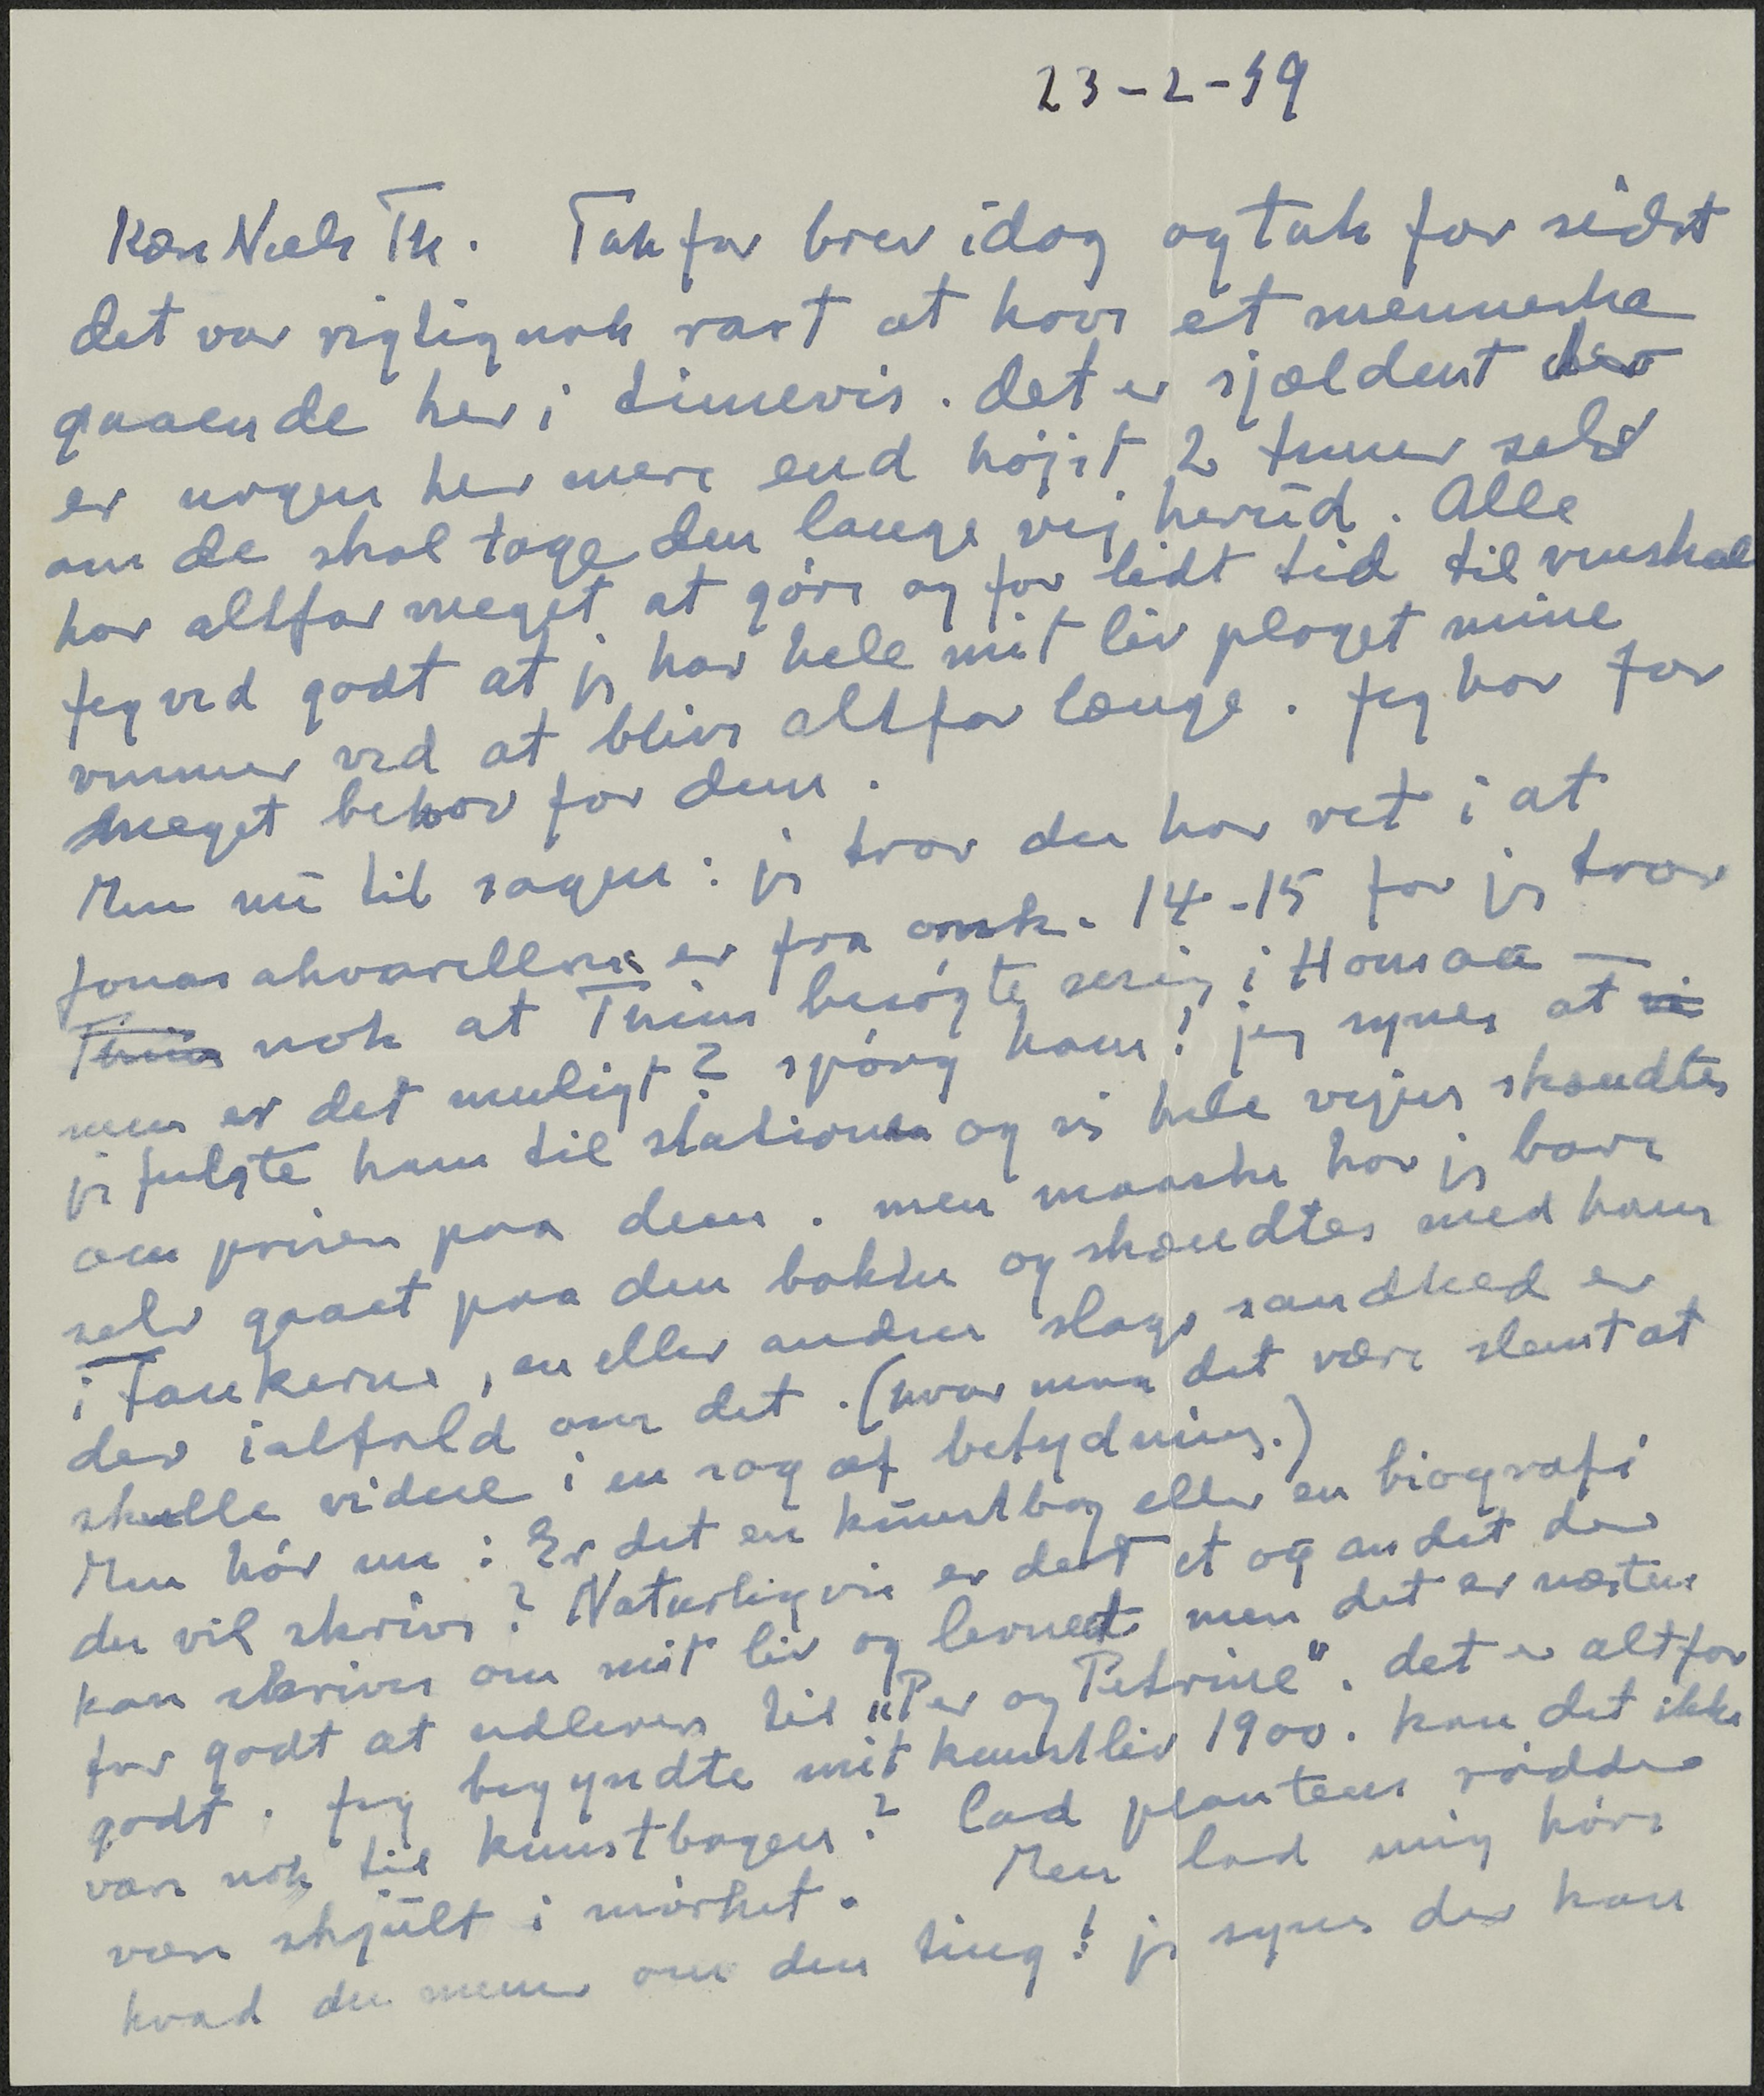 23-2-59
Kære Niels Th. Tak for brev idag og tak for sidst
det var rigtignok rart at have et menneske
gaaende her i timevis. det er sjældent der
er nogen her mere end højst 2 timer selv
om de skal tage den lange vej herud. Alle
har altfor meget at gøre og for lidt tid til venskab
Jeg ved godt at jeg har hele mit liv plaget mine
venner ved at blive altfor længe. Jeg har for
meget behov for dem.
Men nu til sagen: jeg tror du har ret i at
Jonas akvarellerne er fra omk. 14-15 for jeg tror
Thiis nok at Thiis besøgte mig i Hornsaa —
men er det muligt? spørg ham! jeg synes at vi
jeg fulgte ham til stationen og vi hele vejen skændtes
om prisen paa dem. men maaske har jeg bare
selv gaaet paa den bakke og skændtes med ham
i Tankerne, en eller anden slags sandhed er
der ialfald om det. (hvor maa det være slemt at
skulle vidne i en sag af betydning.)
Men hør nu: Er det en kunstbog eller en biografi
du vil skrive? Naturligvis er der et og andet der
kan skrives om mit liv og levned men det er næsten
for godt at udlevere til "Per og Petrine". det er altfor
godt. Jeg begyndte mit kunstliv 1900. kan det ikke
være nok til kunstbogen? Lad plantens rødder
være skjult i mørket. Men lad mig høre
hvad du mener om den ting! jeg synes der kan